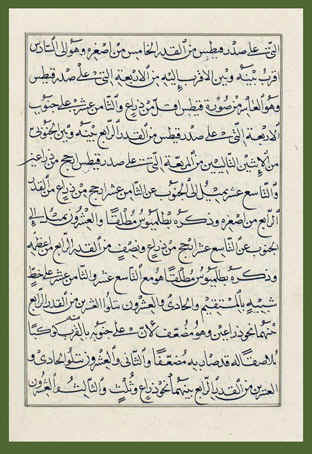 التى على صدر قيطس من القدر الخامس من اصغره وهو الى السادس
اقرب بينه وبين الاقرب اليه من الاربعة التى على صدر قيطس
وهو العاشر من صورة قيطس اقل من ذراع والثامن عشر على جنوب
الاربعة التى على صدر قيطس من القدر الرابع بينه وبين الجنوبى
من الاثنين التاليين من المربعة التى على صدر قيطس ارجح من ذراعين
والتاسع عشر يميل الى الجنوب عن الثامن عشر ارجح من ذراع من القدر
الرابع من اصغره وذكره بطلميوس مطلقا والعشرون يميل الى
الجنوب عن التاسع عشر ارجح من ذراع ونصف من القدر الرابع من اعظمه
وذكره بطلميوس مطلقا هو مع التاسع عشر والثامن عشر على خط
شبيه بالمستقيم والحادى والعشرون يتلو العشرين من القدر الرابع
بينهما نحو ذراعين وهو مضعف لان على جنوبه بالقرب منه كوكبا
ملاصقا له قد صار به مضعفا والثانى والعشرون يتلو الحادى و
العشرين من القدر الرابع بينهما نحو ذراع وثلث والثالث والعشرون